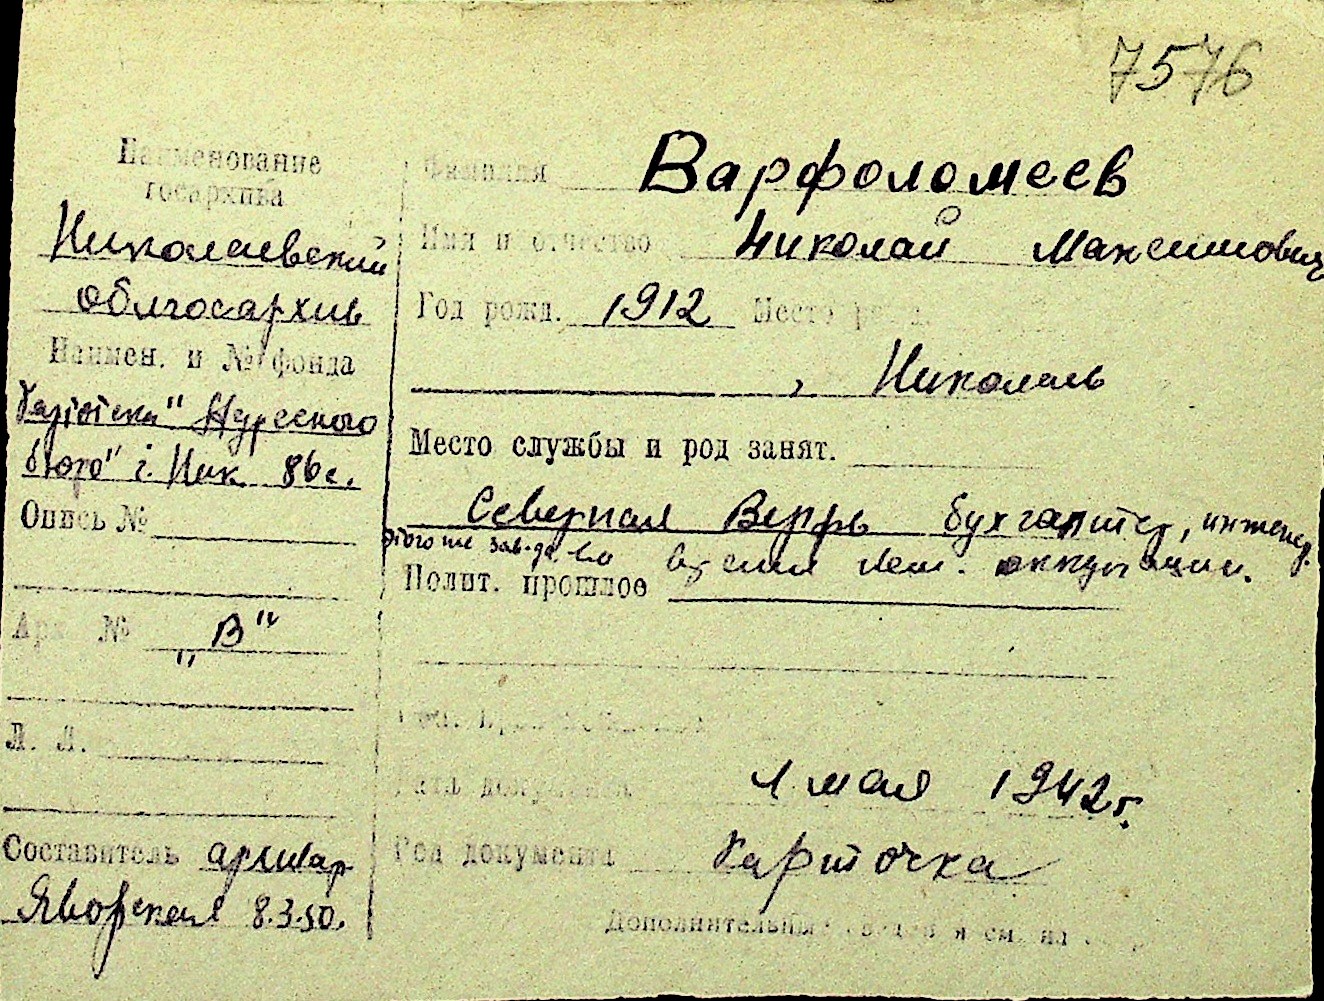 7576
Наименование
госархива
Николаевский
облгосархив
Наимен. и № фонда
Картотека" Адресного
бюро" г. Ник.
Опись №
Арх. №
"В"
Л. Л.
Составитель архивар
Яворская 8.3.50.
Фамилия Варфоломеев
Имя и отчество Николай Максимович
Год рожд. 1912 Место рожд.
, Николаев
Место службы и род занят.
Северная Верфь бухгалтер, инженер.
этого же зав-да во время нем. оккупации.
Полит. прошлое
Дата документа 1 мая 1942 г.
Род документа Карточка
Дополнительные сведения см. на